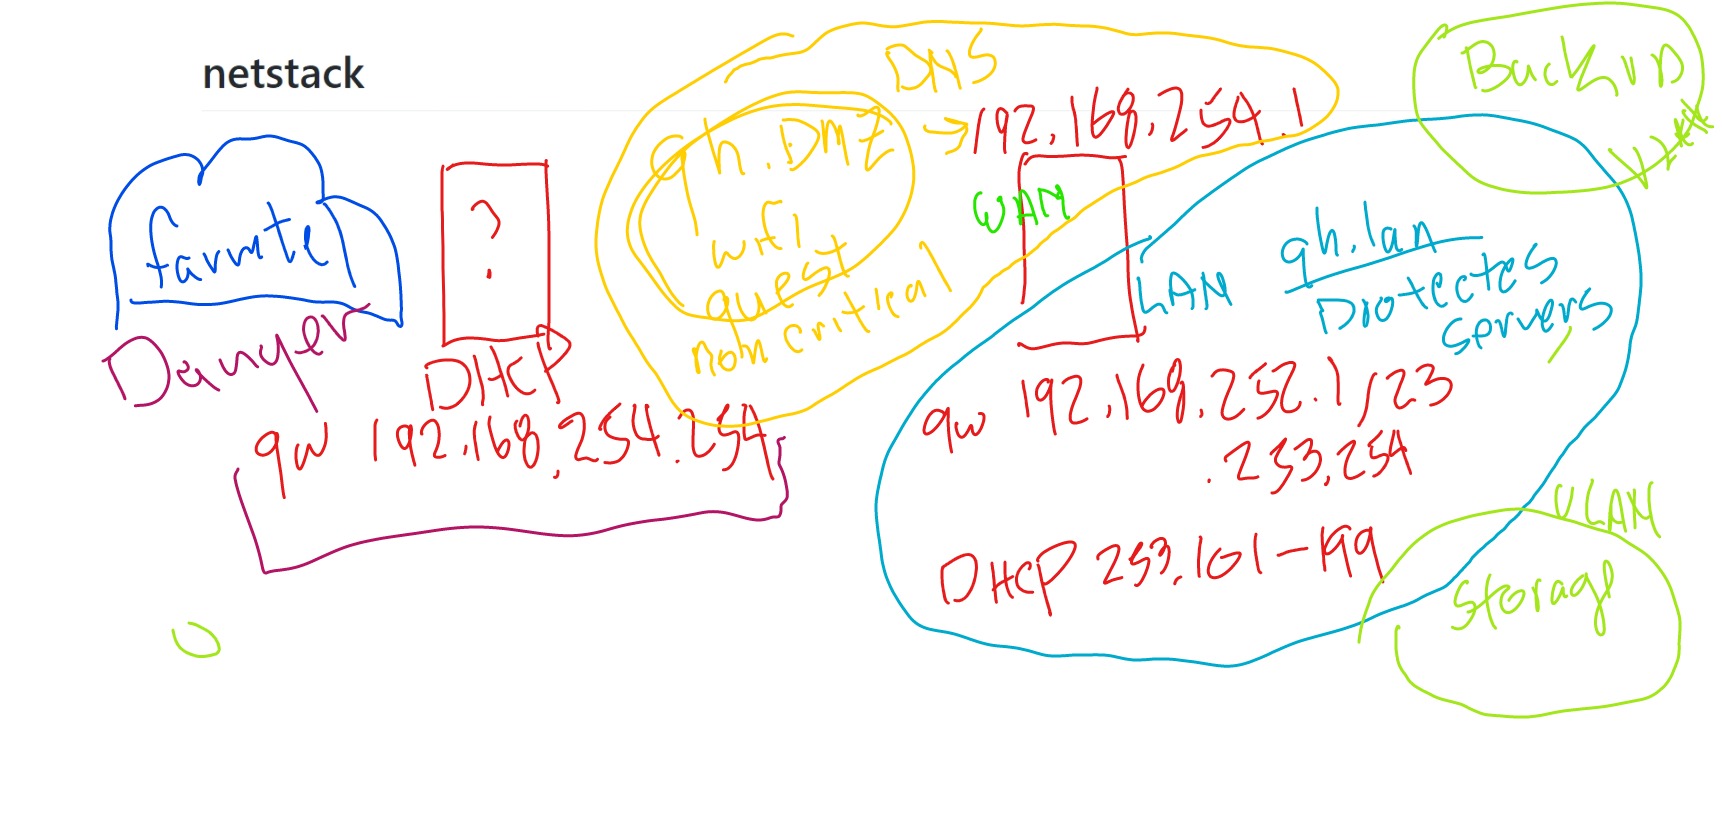 netstack
farmtel
Danger
?
DHCP
gw 192.168.254.254
DNS
gh.DMZ → 192.168.254.1
wifi
guest
non critical
WAN
LAN
gh.lan
protectes
servers
gw 192.168.252.1/23
.253.254
DHCP 253.101-199
Backup
VLAN
Storage